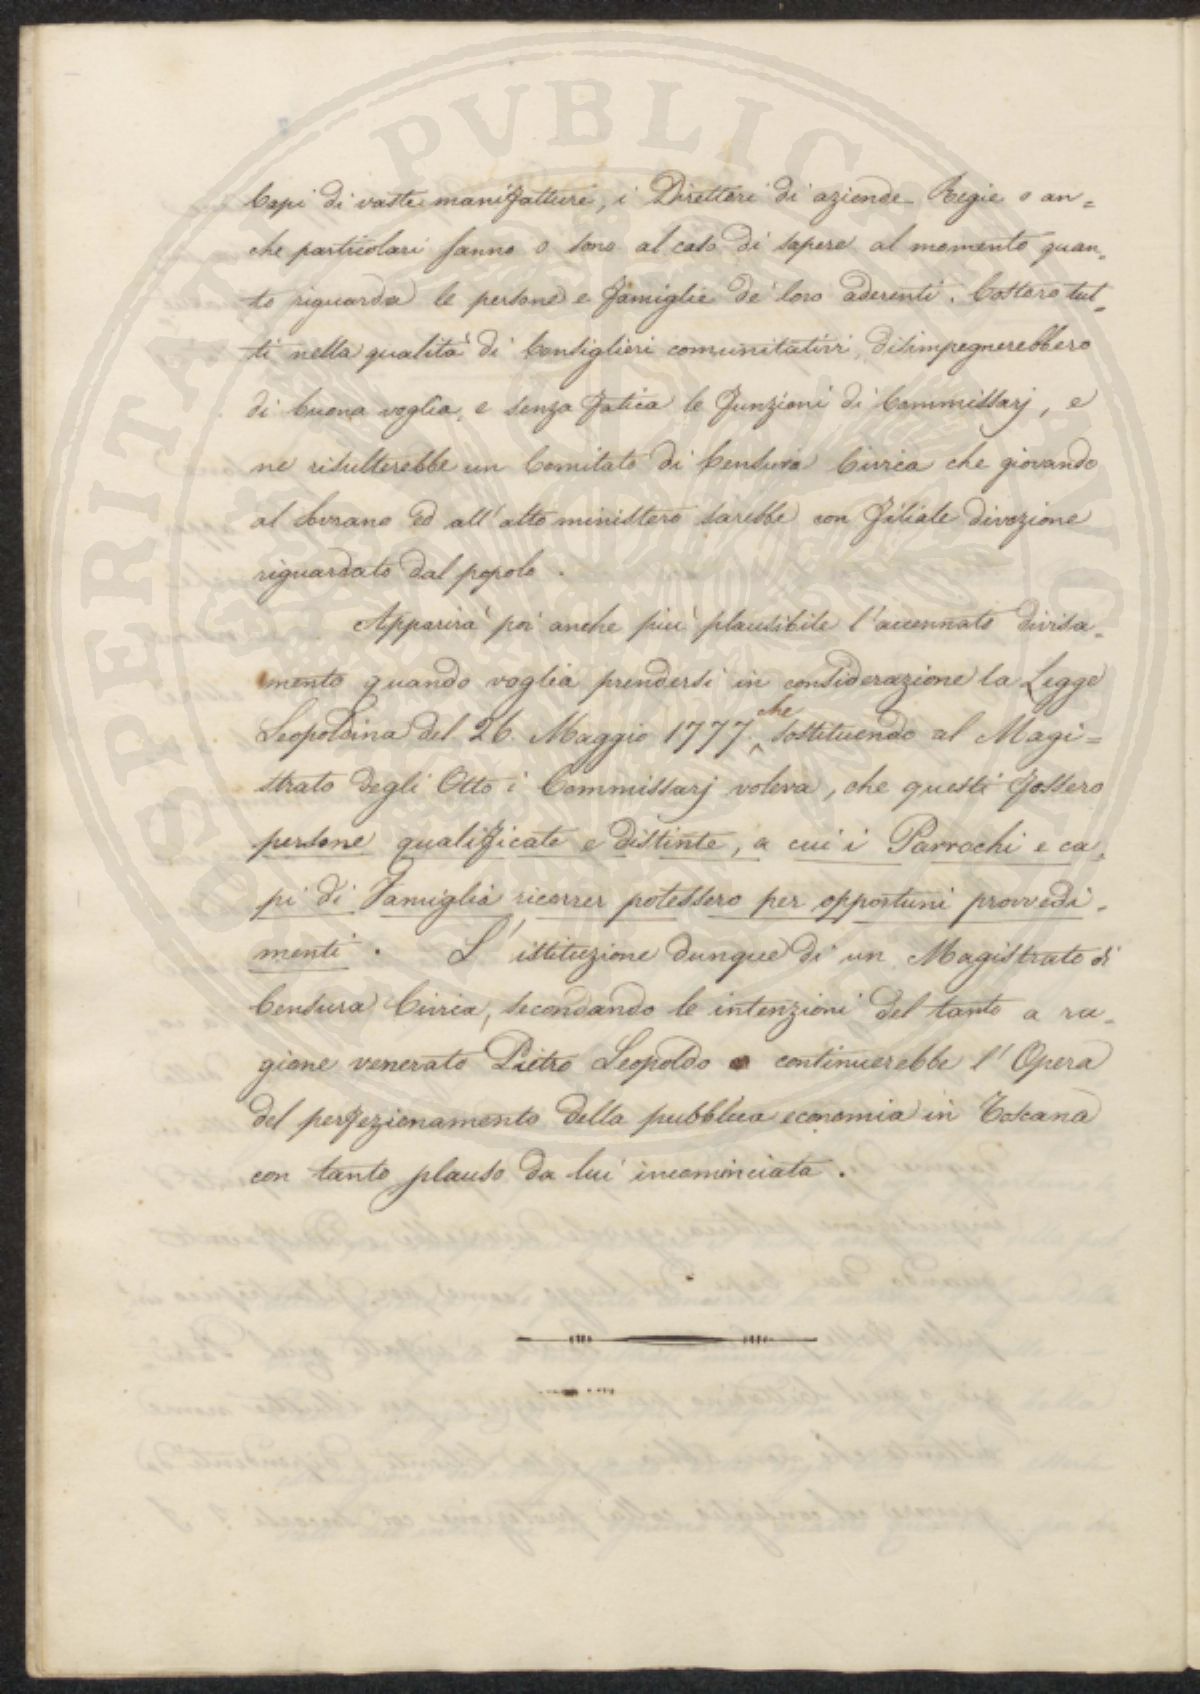 Capi di vaste manifatture, i Direttori di aziende Regie o an=
che particolari sanno o sono al caso di sapere al momento quan=
to riguarda le persone e famiglie de' loro aderenti. Costoro tut=
ti nella qualità di Consiglieri comunitativi, disimpegnerebbero
di buona voglia, e senza fatica le funzioni di Commissarj, e
ne risulterebbe un Comitato di Censura Civica che giovando
al Sovrano ed all'alto ministero sarebbe con filiale divozione
riguardato dal popolo.
Apparirà poi anche più plausibile l'accennato divisa=
mento quando voglia prendersi in considerazione la Legge
Leopoldina del 26. Maggio 1777. che sostituendo al Magi=
strato degli Otto i Commissarj voleva, che questi fossero
persone qualificate e distinte, a cui i Parrochi e ca=
pi di Famiglia ricorrer potessero per opportuni provvedi=
menti. L'istituzione dunque di un Magistrato di
Censura Civica, secondando le intenzioni del tanto a ra=
gione venerato Pietro Leopoldo continuerebbe l'Opera
del perfezionamento della pubblica economia in Toscana
con tanto plauso da lui incominciata.